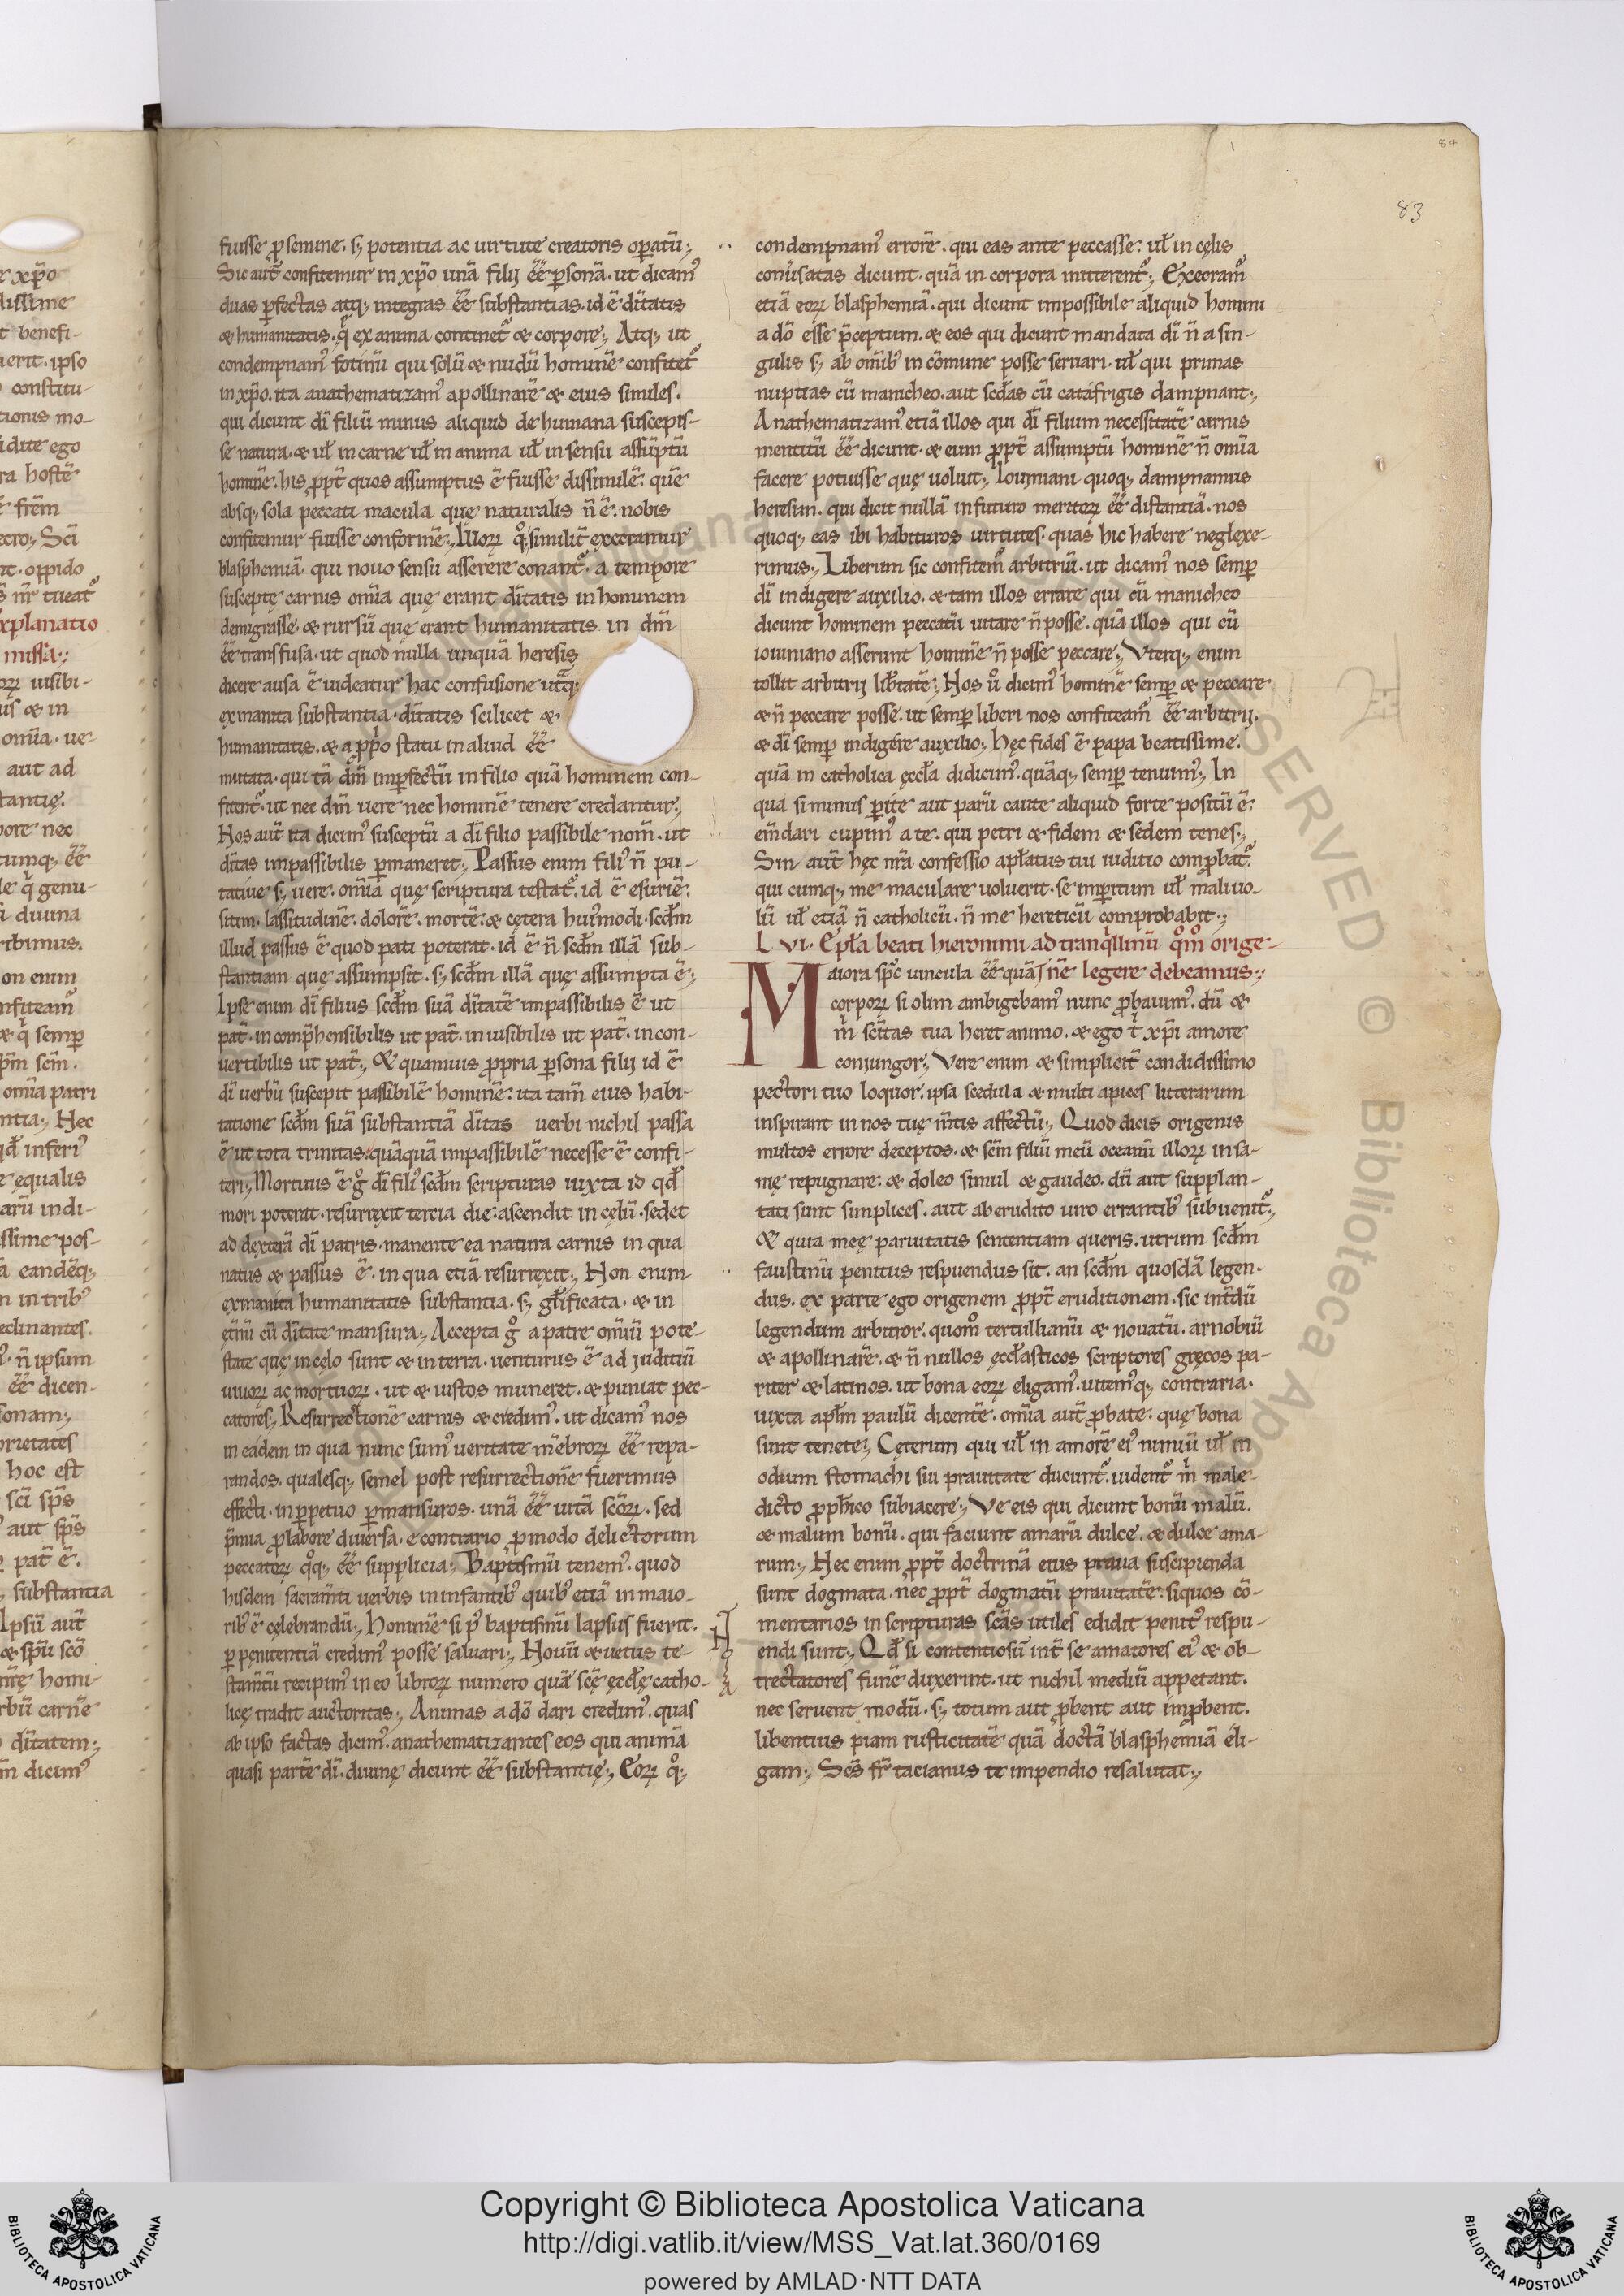 84
83
fuisse ꝓ semine. sꝫ potentia ac uirtute creatoris oꝑatū;
Sic aut̄ confitemur in xp̄o unā filij ēē ꝑsonā. ut dicam᷒
duas ꝑfectas atqꝫ integras ēē substantias. id ē dītatis
& humanitatis. q̄ ex anima continet᷑ & corpore; Atqꝫ ut
condempnam᷒ fotinū qui solū & nudū hominē confitet᷑
in xp̄o. ita anathematizam᷒ apollinarē & eius similes.
qui dicunt dī filiū minus aliquid de humana suscepis-
se natura. & uł in carne uł in anima uł in sensu assūptū
hominē. his ꝓpt̄ quos assumptus ē fuisse dissimilē. quē
absqꝫ sola peccati macula que naturalis n̄ ē. nobis
confitemur fuisse conformē; Illoꝝ qͦꝫ similit̄ execramur
blasphemiā. qui nouo sensu asserere conant᷑. a tempore
susceptę carnis om̄ia quę erant dītatis in hominem
demigrasse. & rursū que erant humanitatis in dm̄
ēē transfusa. ut quod nulla unquā heresis
dicere ausa ē uideatur hac confusione utraqꝫ
exinanita substantia. dītatis scilicet &
humanitatis. & a ꝓp̄o statu in aliud ēē
mutata. qui tā dm̄ imꝑfectū in filio quā hominem con-
fitent᷑. ut nec dm̄ uere nec hominē tenere credantur;
Nos aut̄ ita dicim᷒ susceptū a dī filio passibile nom̄. ut
dītas impassibilis ꝑmaneret; Passus enim fili᷒ n̄ pu-
tatiue sꝫ uere. om̄ia quę scriptura testat᷑. id ē esuriē.
sitim. lassitudinē. dolorē. mortē. & cętera hui᷒modi. scd̄m
illud passus ē quod pati poterat. id ē n̄ scd̄m illā sub-
stantiam que assumpsit. sꝫ scd̄m illā quę assumpta ē;
Ipse enim dī filius scd̄m suā dītatē impassibilis ē ut
pat̄. incomp̄hensibilis ut pat̄. inuisibilis ut pat̄. incon-
uertibilis ut pat̄; & quamuis ꝓpria ꝑsona filij id ē
dī uerbū suscepit passibilē hominē. ita tam̄ eius habi-
tatione scd̄m suā substantiā dītas uerbi nichil passa
ē ut tota trinitas. quāquā impassibilē necesse ē confi-
teri; Mortuus ē gͦ dī fili᷒ scd̄m scripturas iuxta id qd̄
mori poterat. resurrexit tercia die. ascendit in cęlū. sedet
ad dexterā dī patris. manente ea natura carnis in qua
natus & passus ē. in qua etiā resurrexit; Non enim
exinanita humanitatis substantia. sꝫ gl̄ificata. & in
ęt̄nū cū dītate mansura; Accepta gͦ a patre om̄iū pote-
state quę in celo sunt & in terra. uenturus ē ad iuditiū
uiuoꝝ ac mortuoꝝ. ut & iustos muneret. & puniat pec-
catores; Resurrectionē carnis & credim᷒. ut dicam᷒ nos
in eadem in qua nunc sum᷒ ueritate mēbroꝝ ēē repa-
randos. qualesqꝫ semel post resurrectionē fuerimus
effecti. in ꝑpetuo ꝑmansuros. unā ēē uitā scōꝝ. sed
p̄mia ꝓ labore diuersa. e contrario ꝓ modo delictorum
peccatoꝝ qͦqꝫ ēē supplicia; Baptismū tenem᷒. quod
hisdem sacram̄ti uerbis in infantib᷒ quib᷒ etiā in maio-
rib᷒ ē celebrandū; Hominē si p᷒ baptismū lapsus fuerit.
ꝑ pęnitentiā credim᷒ posse saluari; Nouū & uetus te-
stam̄tū recipim᷒ in eo libroꝝ numero quā scē ęccłę catho-
licę tradit auctoritas; Animas a dō dari credim᷒. quas
ab ipso factas dicim᷒. anathematizantes eos qui animā
quasi partē dī. diuinę dicunt ēē substantię; Eoꝝ qͦꝫ
condempnam᷒ errorē. qui eas ante peccasse. uł in cęlis
conu̅satas dicunt. quā in corpora mitterent᷑; Execram᷑
etiā eoꝝ blasphemiā. qui dicunt impossibile aliquid homini
a dō esse p̄ceptum. & eos qui dicunt mandata dī n̄ a sin-
gulis sꝫ ab om̄ib᷒ in cōmune posse seruari. uł qui primas
nuptias cū manicheo. aut scd̄as cū catafrigis dampnant;
Anathematizam᷒ etiā illos qui dī filium necessitatē carnis
mentitū ēē dicunt. & eum ꝓpt̄ assumptū hominē n̄ om̄ia
facere potuisse quę uoluit; Iouiniani quoqꝫ dampnamus
heresian. qui dicit nullā in futuro meritoꝝ ēē distantiā. nos
quoqꝫ eas ibi habituros uirtutes. quas hic habere neglexe-
rimus; Liberum sic confitem᷑ arbitriū. ut dicam᷒ nos semꝑ
dī indigere auxilio. & tam illos errare qui cū manicheo
dicunt hominem peccatū uitare n̄ posse. quā illos qui cū
iouiniano asserunt hominē n̄ posse peccare; Vterqꝫ enim
tollit arbitrij lib̄tatē; Nos uͦ dicim᷒ hominē semꝑ & peccare
& n̄ peccare posse. ut semꝑ liberi nos confiteam᷑ ēē arbitrij.
& dī semꝑ indigere auxilio; Hęc fides ē papa beatissime.
quā in catholica ęccła didicim᷒. quāqꝫ semꝑ tenuim᷒; In
qua si minus ꝑite aut parū caute aliquid forte positū ē.
em̄dari cupim᷒ a te. qui petri & fidem & sedem tenes;
Sin aut̄ hęc nr̄a confessio apłatus tui iuditio comꝓbat᷑.
qui cumqꝫ me maculare uoluerit. se imꝑitum uł maliuo-
lū uł etiā n̄ catholicū. n̄ me hereticū comprobabit;
LVI. Epła beati hieronimi ad tranqͥllinū qͦm̄ orige-
nē legere debeamus;
Maiora sp̄c uincula ēē quā
corpoꝝ si olim ambigebam᷒ nunc ꝓbauim᷒. dū &
mͥ scītas tua heret animo. & ego tͥ xp̄i amore
conjungor; Vere enim & simplicit̄ candidissimo
pectori tuo loquor. ipsa scedula & multi apices litterarum
inspirant in nos tuę m̄tis affectū; Quod dicis origenis
multos errore deceptos. & sc̄m filiū meū oceanū illoꝝ insa-
nię repugnare. & doleo simul & gaudeo. dū aut supplan-
tati sunt simplices. aut ab erudito uiro errantib᷒ subuenit᷑;
& quia meę paruitatis sententiam queris. utrum scd̄m
faustinū penitus respuendus sit. an scd̄m quosdā legen-
dus. ex parte ego origenem ꝓpt̄ eruditionem. sic int̄dū
legendum arbitror. quomͦ tertullianū & nouatū. arnobiū
& apollinarē. & n̄ nullos ęccłasticos scriptores gręcos pa-
riter & latinos. ut bona eoꝝ eligam᷒. uitem᷒qꝫ contraria.
iuxta apłm paulū dicentē. om̄ia aut̄ ꝓbate. quę bona
sunt tenete; Cęterum qui uł in amorē ei᷒ nimiū uł in
odium stomachi sui prauitate ducunt᷑. uident᷑ mͥ male-
dicto ꝓph̄ico subiacere; Ve eis qui dicunt bonū malū.
& malum bonū. qui faciunt amarū dulce. & dulce ama-
rum; Nec enim ꝓpt̄ doctrinā eius praua suscipienda
sunt dogmata. nec ꝓpt̄ dogmatū prauitatē. siquos cō-
mentarios in scripturas scās utiles edidit penit᷒ respu-
endi sunt; Qd̄ si contentiosū int̄ se amatores ei᷒ & ob-
trectatores funē duxerint. ut nichil mediū appetant.
nec seruent modū. sꝫ totum aut ꝓbent aut imꝓbent.
libentius piam rusticitatē quā doctā blasphemiā eli-
gam; Scs̄ fr̄ tacianus te impendio resalutat;
Copyright © Biblioteca Apostolica Vaticana
http://digi.vatlib.it/view/MSS_Vat.lat.360/0169
powered by AMLAD·NTT DATA
BIBLIOTECA APOSTOLICA VATICANA
BIBLIOTECA APOSTOLICA VATICANA